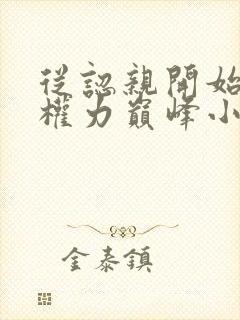 從認親開始
權力巔峰小
金泰鎮